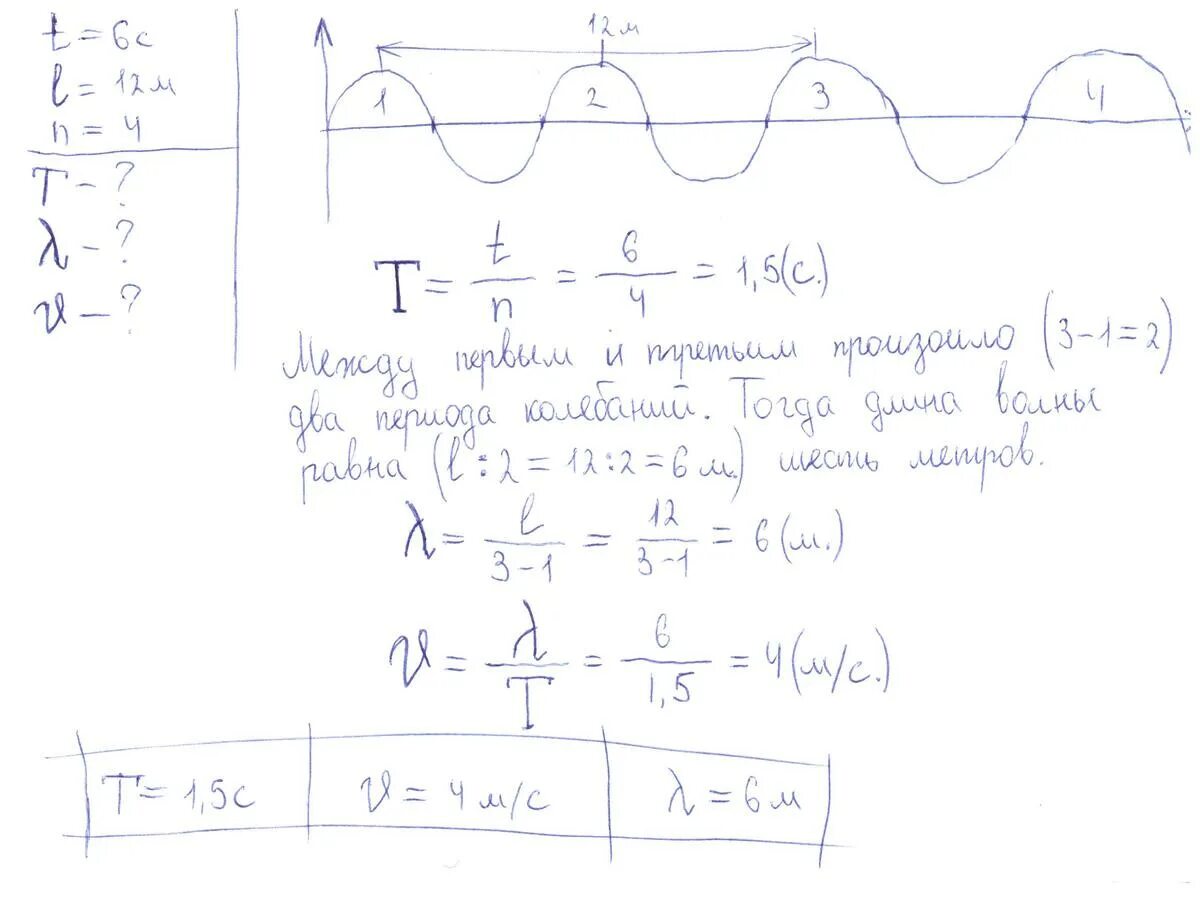 t = 6с
l = 12м
n = 4
T - ?
λ - ?
v - ?
12м
1 2 3 4
T = t/n = 6/4 = 1,5(с.)
Между первым и третьим произошло (3-1=2)
два периода колебаний. Тогда длина волны
равна (l:2=12:2=6м.) шесть метров.
λ = l/(3-1) = 12/(3-1) = 6(м.)
v = λ/T = 6/1,5 = 4(м/с.)
T = 1,5с v = 4м/с λ = 6м